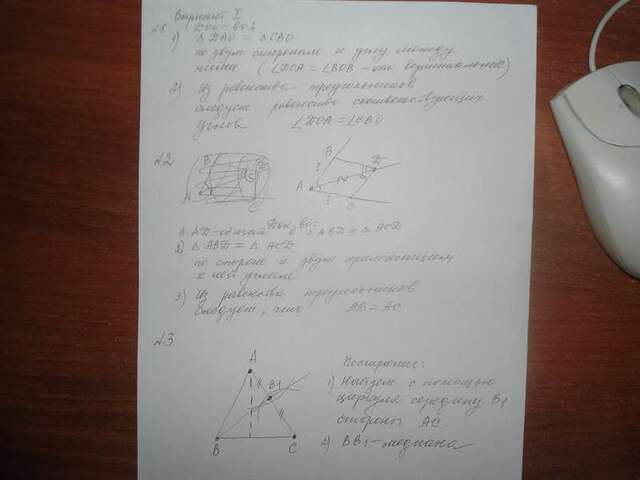 Вариант I.
№1 Док-во:
1) △ DAO = △ CBO
по двум сторонам и углу между
ними (∠DOA = ∠BOB - как вертикальные)
2) Из равенства треугольников
следует равенство соответствующих
углов ∠DOA = ∠CBO
№2
B D
A C
B D
A C
Док-во:
1. AD-общая △ABD и △ACD
2) △ ABD = △ ACD
по стороне и двум прилежащим
к ней углам
3) Из равенства треугольников
следует, что AB = AC
№3
A
B1
B C
Построение:
1) Найдем с помощью
циркуля середину B1
стороны AC.
2) BB1-медиана